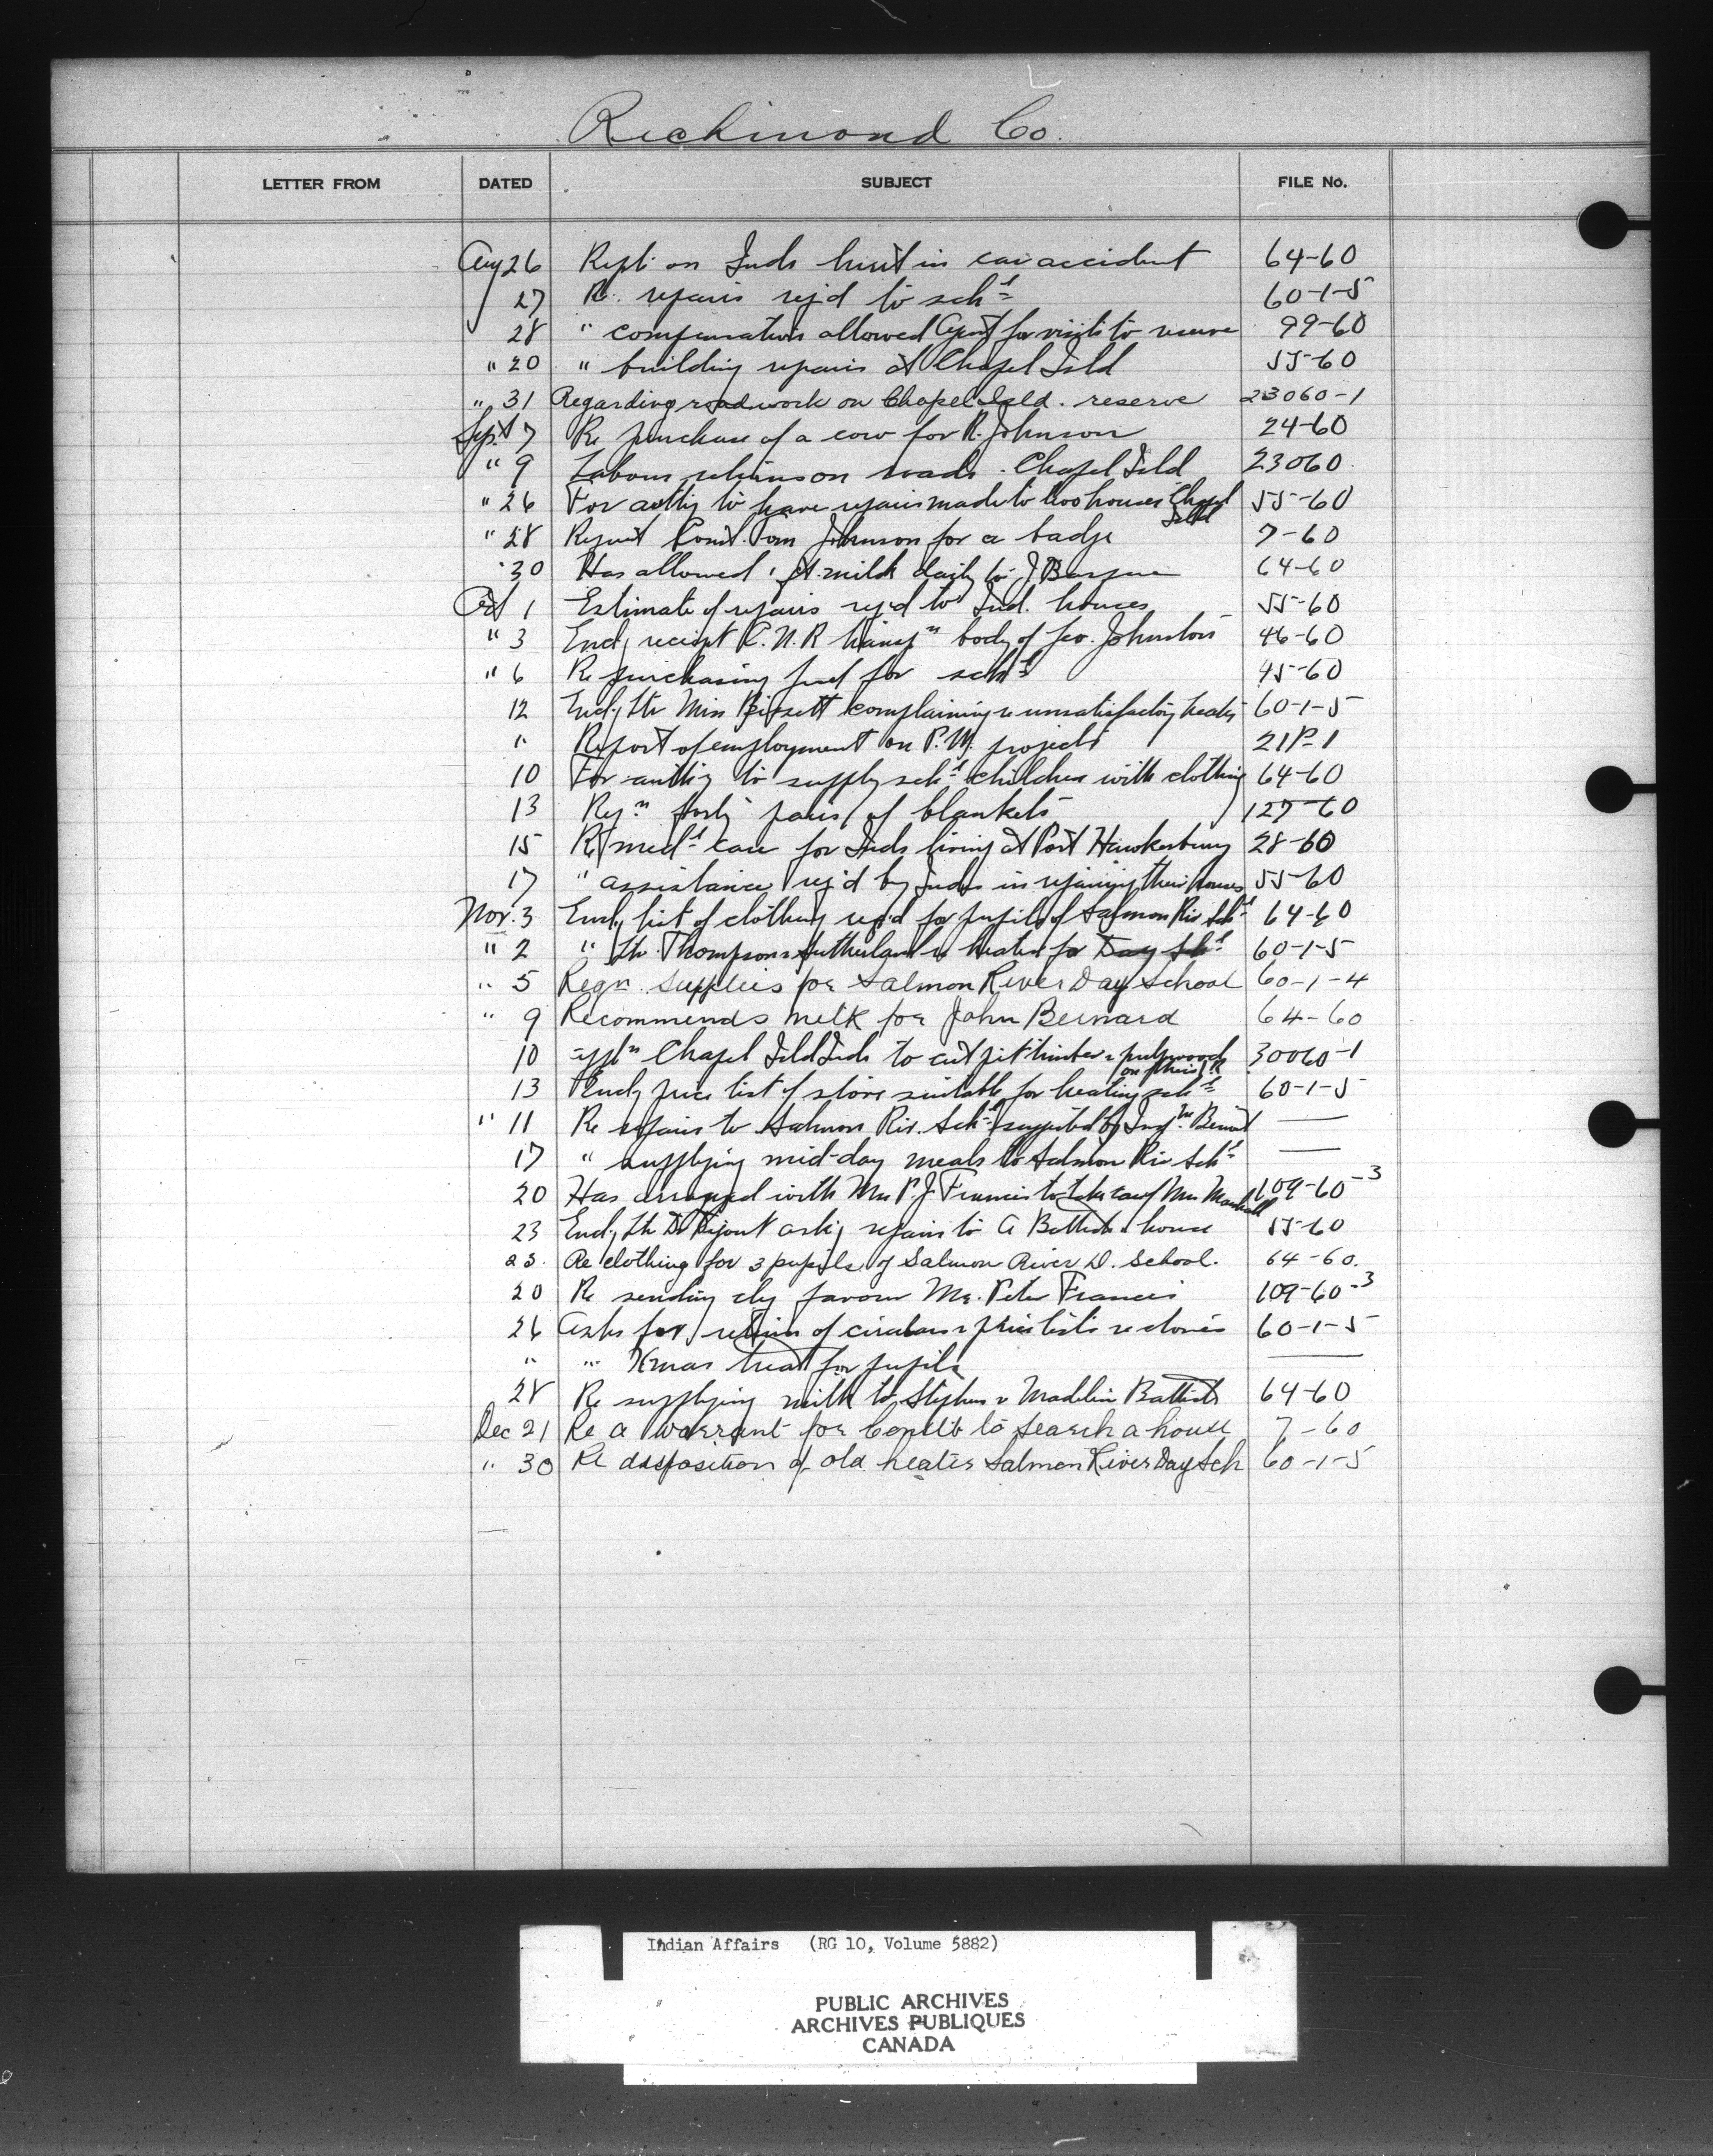 Richmond Co.
LETTER FROM DATED SUBJECT FILE No.
Aug 26 Rept. on Inds hurt in car accident 64-60
27 Re. repairs req'd to sch^l 60-1-5
28 " compensation allowed Agent for visits to reserve 99-60
" 20 " building repairs at Chapel Isld 55-60
" 31 Regarding road work on Chapel Isld. reserve 23060-1
Sept 7 Re purchase of a cow for R. Johnson 24-60
" 9 Labour returns on roads. Chapel Isld 23060
" 26 For authy to have repairs made to two houses Chapel Isld 55-60
" 28 Request Const. Tom Johnson for a badge 7-60
" 30 Has allowed 1 pt. milk daily to J. 64-60
Oct 1 Estimate of repairs req'd to Ind. houses 55-60
" 3 Encl'g receipt C.N.R transp^n body of Geo. Johnston 46-60
" 6 Re purchasing fuel for sch^l 45-60
12 Encl'g ltr Miss Bissett complaining re unsatisfactory heater 60-1-5
" Report of employment on P.W. projects 21P-1
10 For authy to supply sch^l children with clothing 64-60
13 Req^n forty pairs of blankets 127-60
15 Re med^l care for Inds living at Port Hawkesbury 28-60
17 " assistance req'd by Inds in repairing their houses 55-60
Nov. 3 Encl'g list of clothing req'd for pupils of Salmon Riv Sch^l 64-60
" 2 " ltr. Thompson & Sutherland re heater for Day Sch^l 60-1-5
" 5 Reqn. supplies for Salmon River Day School 60-1-4
" 9 Recommends milk for John Bernard 64-60
10 appl^n Chapel Isld Inds to cut pit timber & pulpwood on their R 30060-1
13 Encl'g price list of stove suitable for heating sch^l 60-1-5
" 11 Re repairs to Salmon Riv. Sch^l suggested by Insp^r —
17 " supplying mid-day meals to Salmon Riv Sch^l —
20 Has arranged with Mrs P.J. Francis to take care of Mrs Marshall 109-60-3
23 Encl'g ltr Dr ask'g repairs to A Battiste's house 55-60
23. Re clothing for 3 pupils of Salmon River D. School. 64-60.
20 Re sending chq favour Mrs. Peter Francis 109-60-3
26 Asks for return of circulars & price lists re stoves 60-1-5
" " Xmas treat for pupils —
28 Re supplying milk to Stephen & Madelin Battiste 64-60
Dec 21 Re a warrant for Const to search a house 7-60
" 30 Re disposition of old heater Salmon River Day Sch 60-1-5
Indian Affairs (RG 10, Volume 5882)
PUBLIC ARCHIVES
ARCHIVES PUBLIQUES
CANADA